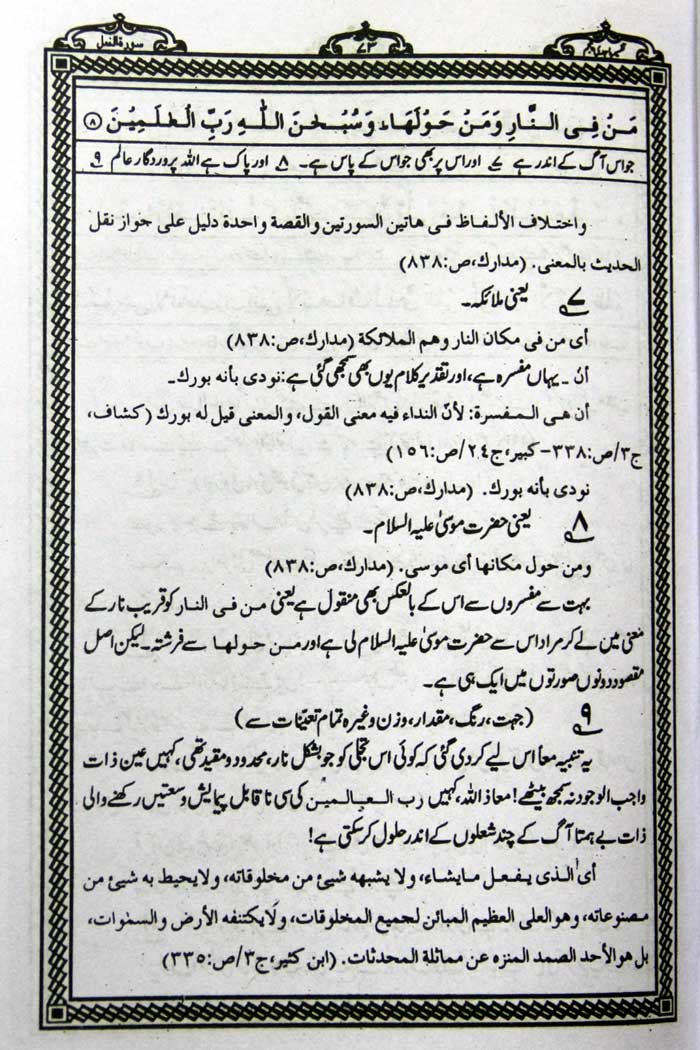 سورۃ النمل
۷۳
مَنْ فِی النَّارِ وَمَنْ حَوْلَهَا، وَسُبْحٰنَ اللّٰهِ رَبِّ الْعٰلَمِیْنَ ۸
جو اس آگ کے اندر ہے ۷ اور اس پر بھی جو اس کے پاس ہے۔ ۸ اور پاک ہے اللہ پروردگار عالم ۹
واختلاف الألفاظ فی هاتین السورتین والقصة واحدة دلیل علی جواز نقل
الحدیث بالمعنی. (مدارك،ص:۸۳۸)
۷ یعنی ملائکہ۔
أی من فی مكان النار وهم الملائكة (مدارك،ص:۸۳۸)
أن ۔ یہاں مفسرہ ہے، اور تقدیر کلام یوں بھی سمجھی گئی ہے: نودی بأنه بورك۔
أن هی المفسرة: لأنّ النداء فیه معنی القول، والمعنی قیل له بورك (کشاف،
ج۳/ص:۳۳۸-کبیر،ج۲٤/ص:۱۵٦)
نودی بأنه بورك. (مدارك،ص:۸۳۸)
۸ یعنی حضرت موسیٰ علیہ السلام۔
ومن حول مكانها أی موسی. (مدارك،ص:۸۳۸)
بہت سے مفسروں سے اس کے بالعکس بھی منقول ہے یعنی من فی النار کو قریب نار کے
معنی میں لے کر مراد اس سے حضرت موسیٰ علیہ السلام لی ہے اور من حولها سے فرشتہ۔ لیکن اصل
مقصود دونوں صورتوں میں ایک ہی ہے۔
۹ (جہت، رنگ، مقدار، وزن وغیرہ تمام تعینات سے)
یہ تنبیہ معاً اس لیے کردی گئی کہ کوئی اس تجلی کو جو بشکل نار، محدود و مقید تھی، کہیں عین ذات
واجب الوجود نہ سمجھ بیٹھے! معاذ اللہ، کہیں رب العالمین کی سی ناقابل پیمایش وسعتیں رکھنے والی
ذات بے ہمتا آگ کے چند شعلوں کے اندر حلول کرسکتی ہے!
أی الذی یفعل مایشاء، ولا یشبهه شیئ من مخلوقاته، ولایحیط به شیئ من
مصنوعاته، وهو العلی العظیم المبائن لجمیع المخلوقات، ولایکتنفه الأرض والسمٰوات،
بل هو الأحد الصمد المنزه عن مماثلة المحدثات. (ابن کثیر،ج۳/ص:۳۳۵)